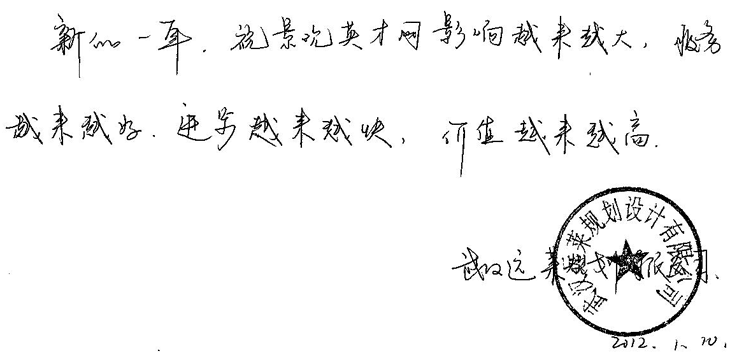 新的一年，祝景观英才网影响越来越大，服务
越来越好，进步越来越快，价值越来越高。
武汉远莱规划有限公司
武汉远莱规划设计有限公司
2012.1.10.